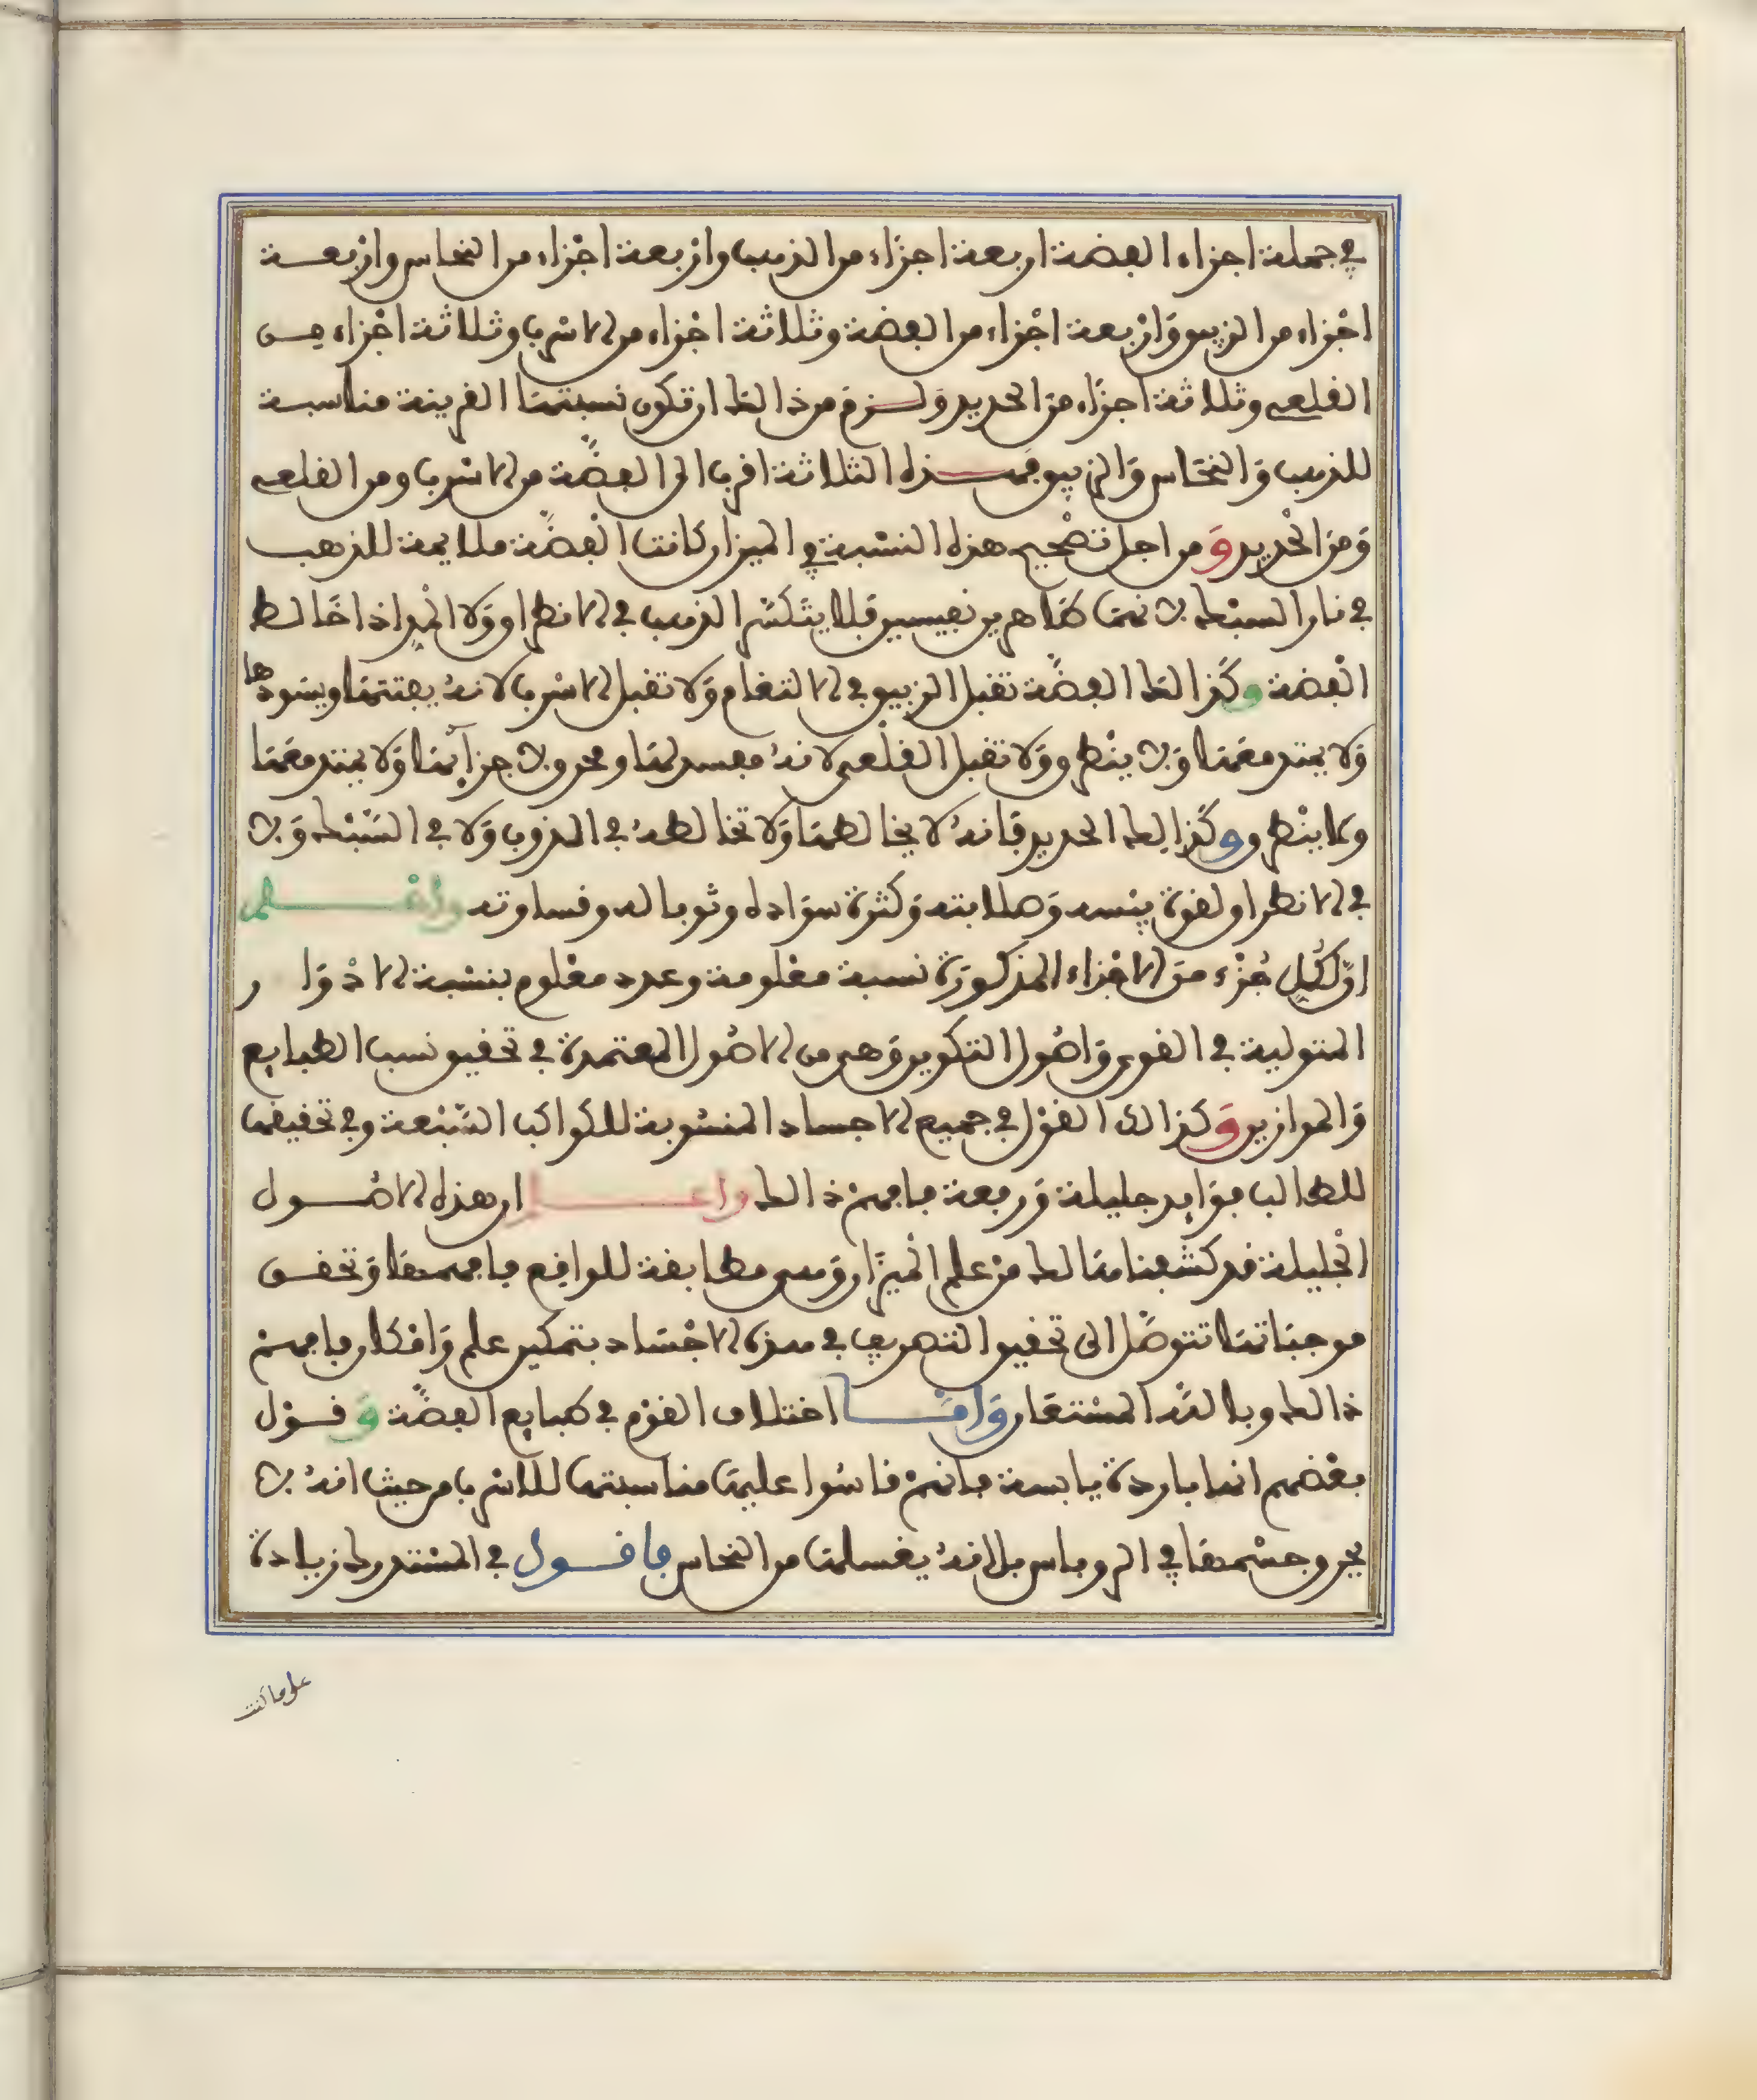 في جملة اجزاء الفضة اربعة اجزاء من الذهب واربعة اجزاء من النحاس واربعـة
اجزاء من الزيبق واربعة اجزاء من الفضة وثلاثة اجزاء من الاسرب وثلاثة اجزاء مـن
القلعي وثلاثة اجزاء من الحديد ولـزم من ذالك ان تكون نسبتها القريبة مناسبة
للذهب والنحاس والزيبق فهـذه الثلاثة اقرب الى الفضة من الاسرب ومن القلعي
ومن الحديد ومن اجل تصحيح هذه النسبة في الميزان كانت الفضة ملايمة للذهب
في نار السبك لانهما طاهرين نفيسين فلا يتكسر الذهب في الانطراق ولا المد اذا خالط
الفضة وكذالك الفضة تقبل الزيبق في الالتغام ولا تقبل الاسرب لانه يفتتها ويسودها
ولا يمتد معها ولا ينطرق ولا تقبل القلعي لانه مفسد لها ومحرق لاجزائها ولا يمتد معها
ولا ينطرق وكذالك الحديد فانه لا يخالطها ولا تخالطه في الذوب ولا في السبك ولا
في الانطراق لقوة يبسه وصلابته وكثرة سواده وثوباله وقساوته واعـلم
ان لكل جزء من الاجزاء المذكورة نسبة معلومة وعدد معلوم بنسبة الادوار
المتولية في القوى واصول التكوير وهي من الاصول المعتمدة في تحقيق نسب الطبايع
والموازين وكذالك القول في جميع الاجساد المنسوبة للكواكب السبعة وفي تحقيقها
للطالب فوايد جليلة ورفعة فافهم ذالك واعـلـ ان هذه الاصـول
الجليلة قد كشفنا هنالك من علم الميزان وهي مطابقة للواقع فافهمها وتحقـق
موجباتها تتوصل الى تحقيق التصريف في هذه الاجساد بتمكين علم وافكار فافهم
ذالك وبالله المستعان وامـا اختلاف القوم في طبايع الفضة وقـول
بعضهم انها باردة يابسة فانهم قاسوا عليها مناسبتها للاسرب من حيث انه لا
يحرق جسمها في الروباس بل انه يغسلها من النحاس فاقـول في المستدرك زيادة
على ما كنت